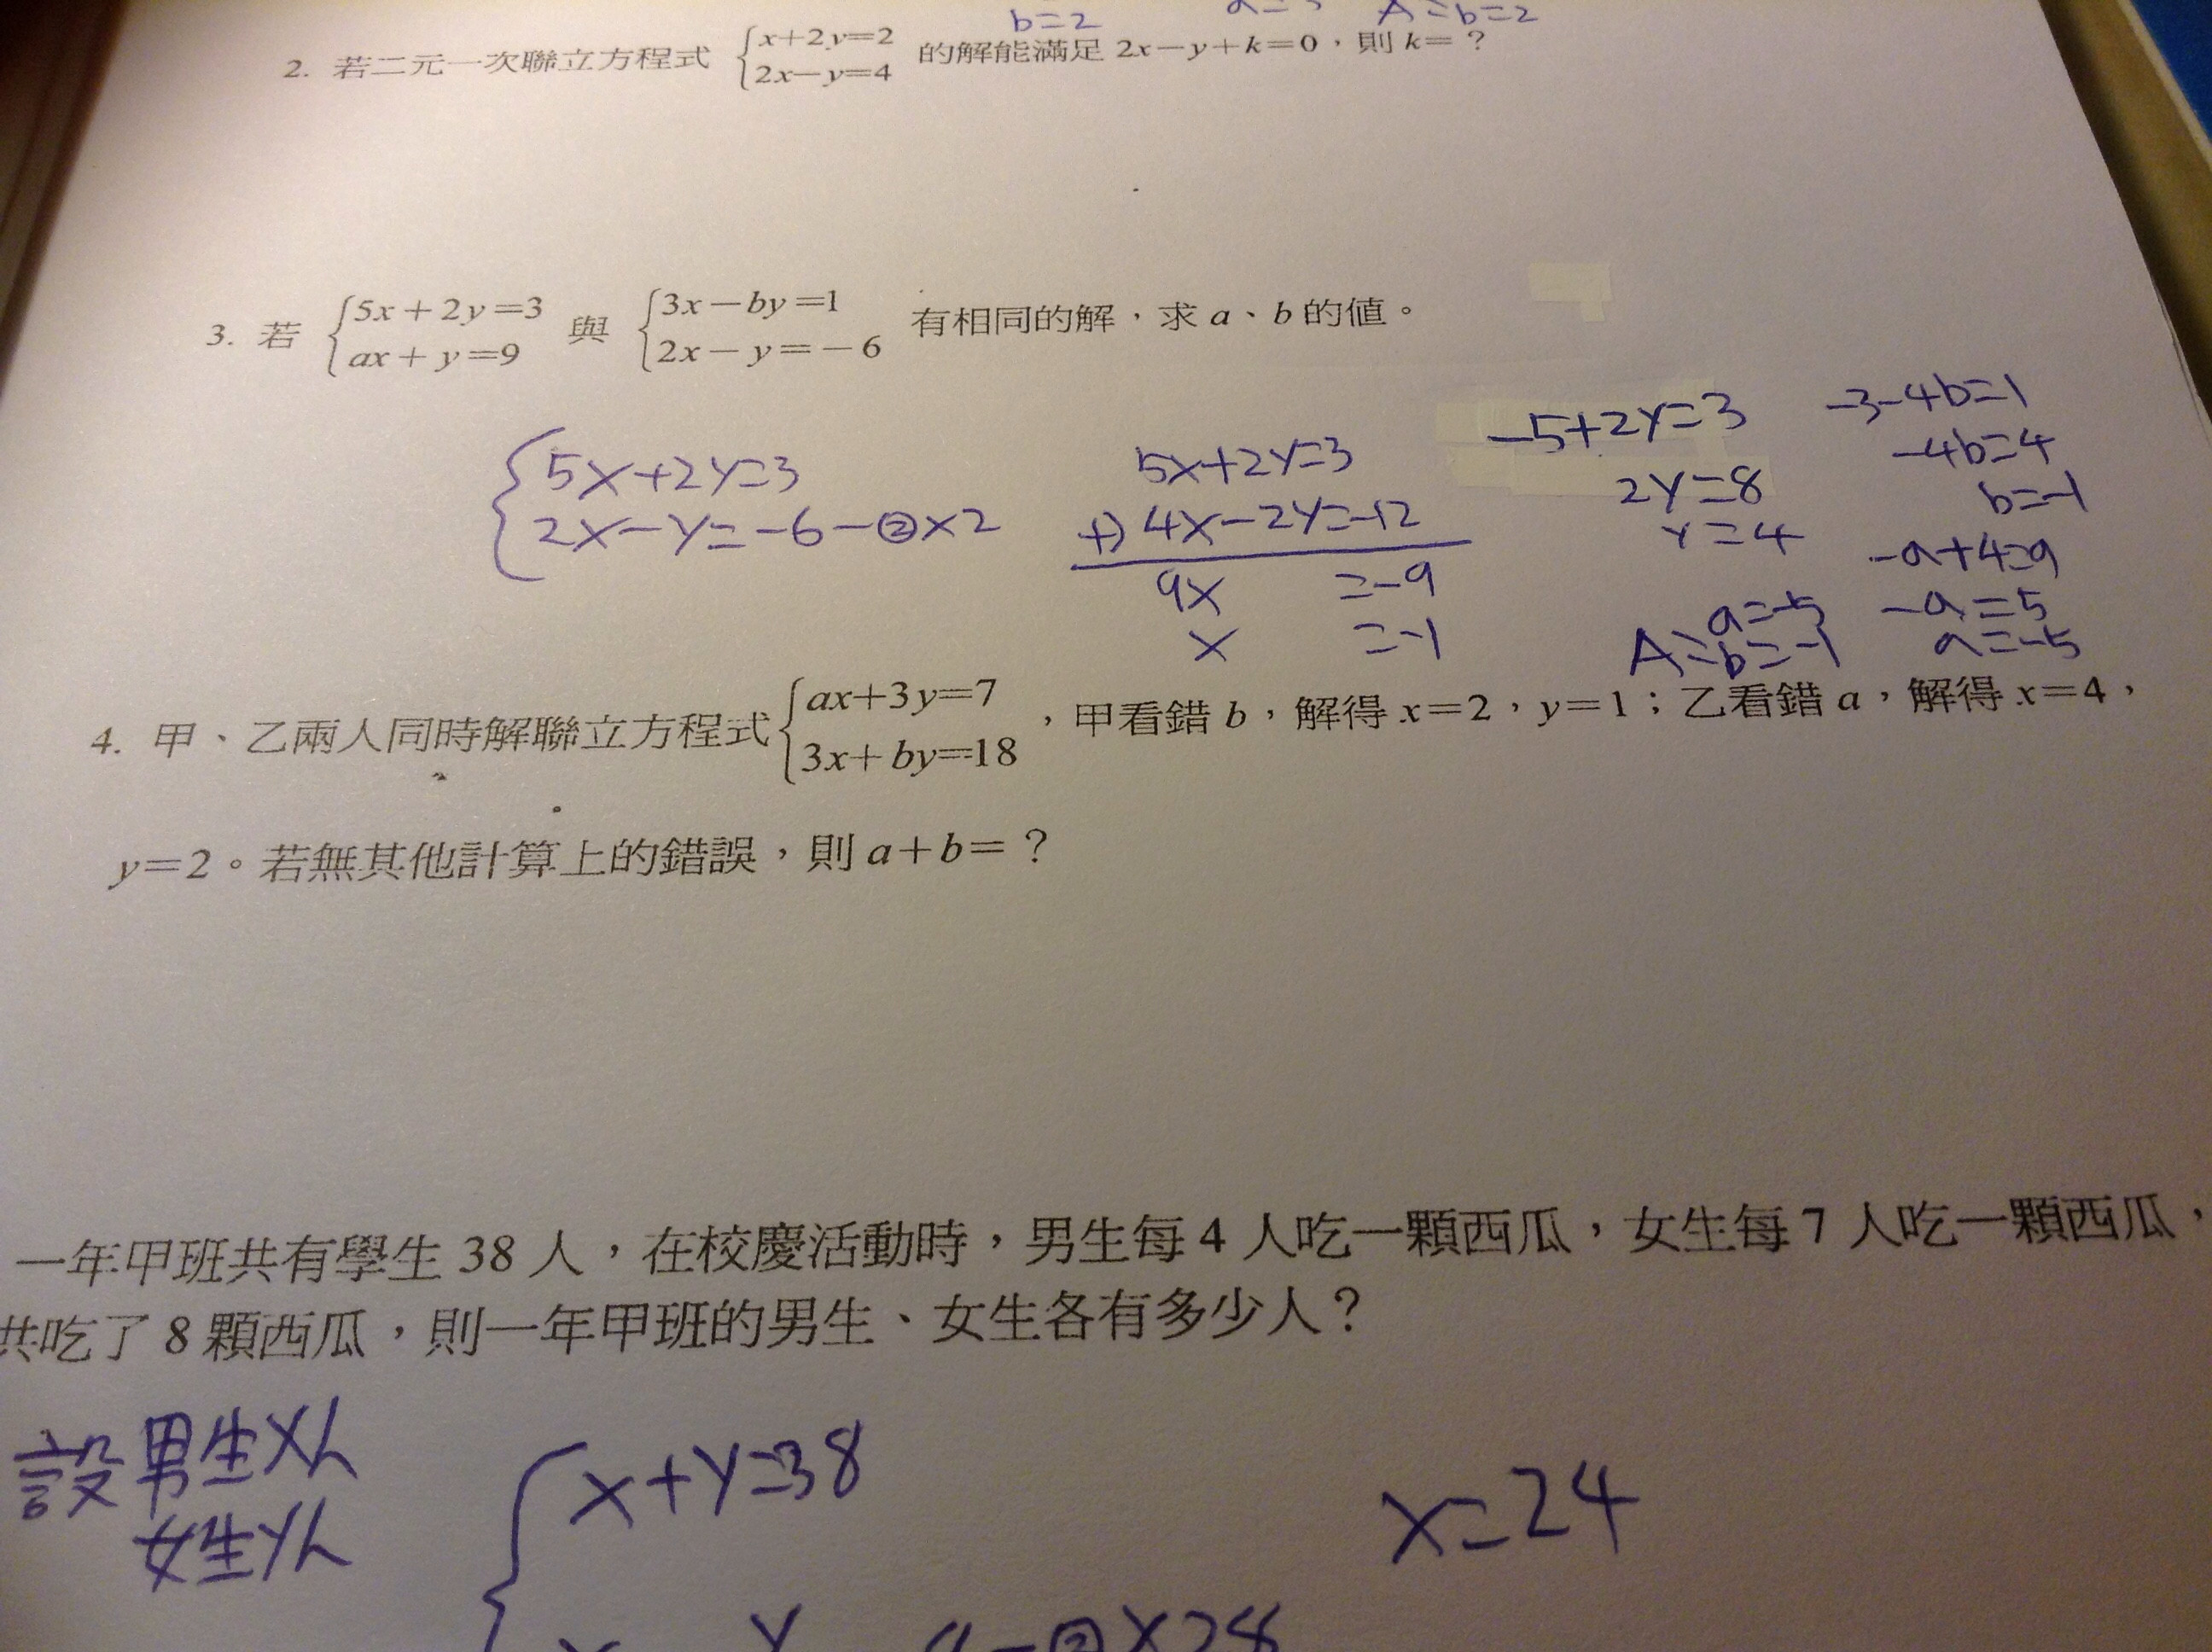 b=2
A=b=2
2. 若二元一次聯立方程式 {x+2y=2 的解能滿足 2x-y+k=0，則 k=？
2x-y=4
3. 若 {5x+2y=3 與 {3x-by=1 有相同的解，求 a、b 的值。
ax+y=9 2x-y=-6
{5x+2y=3
2x-y=-6-②×2
5x+2y=3
+) 4x-2y=-12
9x =-9
x =-1
-5+2y=3
2y=8
y=4
-3-4b=1
-4b=4
b=-1
-a+4=9
-a=5
a=-5
a=-5
A=b=-1
4. 甲、乙兩人同時解聯立方程式 {ax+3y=7 ，甲看錯 b，解得 x=2，y=1；乙看錯 a，解得 x=4，
3x+by=18
y=2。若無其他計算上的錯誤，則 a+b=？
一年甲班共有學生 38 人，在校慶活動時，男生每 4 人吃一顆西瓜，女生每 7 人吃一顆西瓜，
共吃了 8 顆西瓜，則一年甲班的男生、女生各有多少人？
設男生x人
女生y人
{x+y=38
x=24